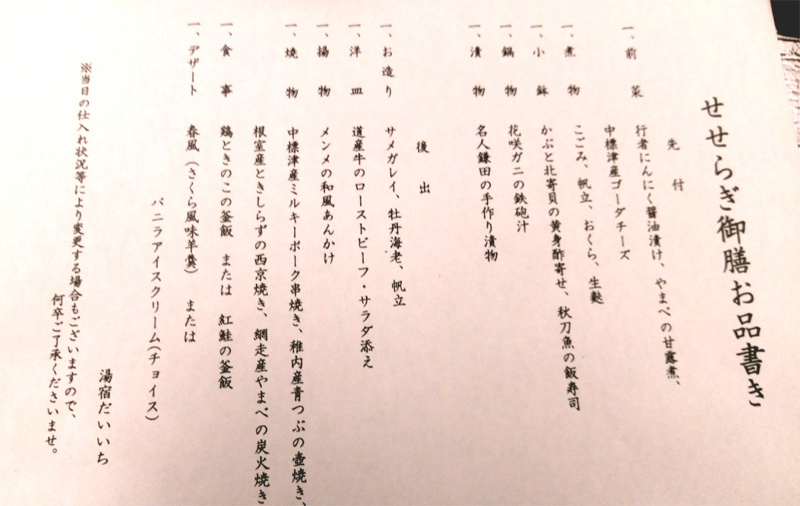 せせらぎ御膳お品書き
先付
一、前菜 行者にんにく醤油漬け、やまべの甘露煮、
中標津産ゴーダチーズ
一、煮物 こごみ、帆立、おくら、生麩
一、小鉢 かぶと北寄貝の黄身酢寄せ、秋刀魚の飯寿司
一、鍋物 花咲ガニの鉄砲汁
一、漬物 名人鎌田の手作り漬物
後出
一、お造り サメガレイ、牡丹海老、帆立
一、洋皿 道産牛のローストビーフ・サラダ添え
一、揚物 メンメの和風あんかけ
一、焼物 中標津産ミルキーポーク串焼き、稚内産青つぶの壺焼き、
根室産ときしらずの西京焼き、網走産やまべの炭火焼き
一、食事 鶏ときのこの釜飯 または 紅鮭の釜飯
一、デザート 春風（さくら風味羊羹） または
バニラアイスクリーム（チョイス）
湯宿だいいち
※当日の仕入れ状況等により変更する場合もございますので、
何卒ご了承くださいませ。